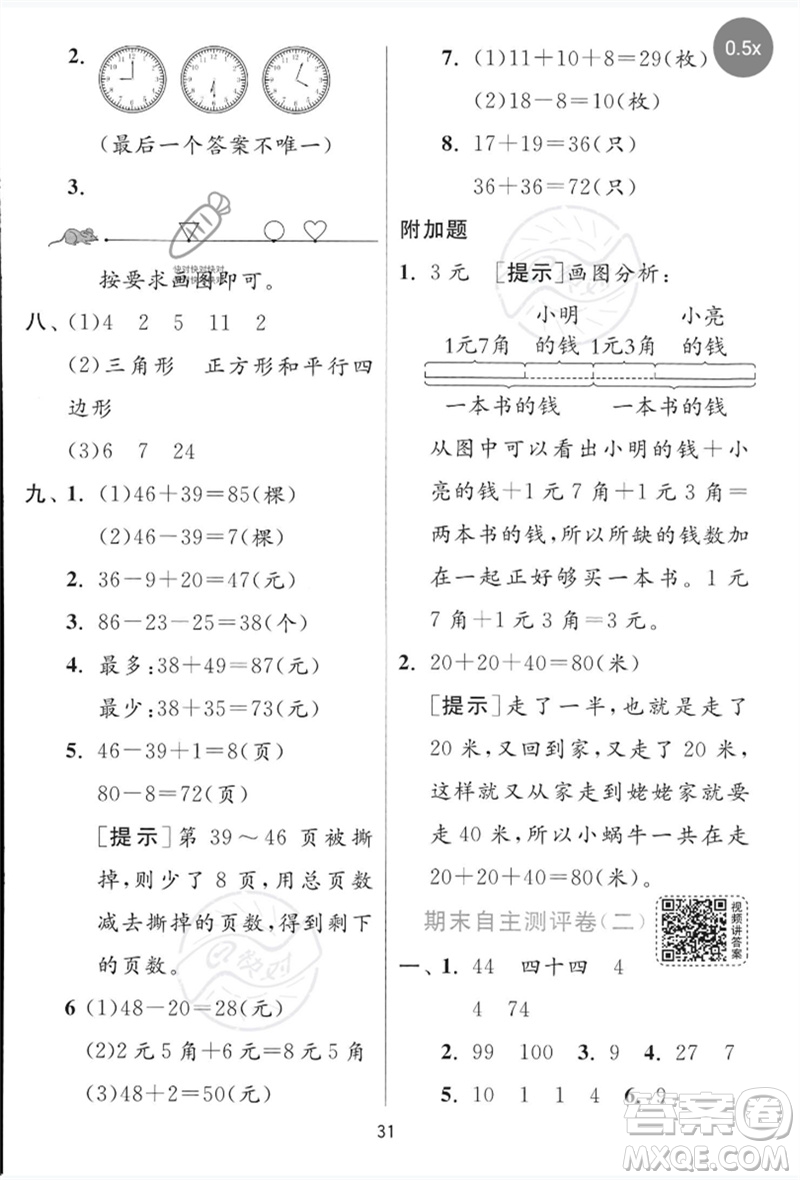 2.
(最后一个答案不唯一)
3.
快对快对快对
按要求画图即可。
八、(1)4 2 5 11 2
(2)三角形 正方形和平行四
边形
(3)6 7 24
九、1. (1)46+39=85(棵)
(2)46-39=7(棵)
2. 36-9+20=47(元)
3. 86-23-25=38(个)
4. 最多:38+49=87(元)
最少:38+35=73(元)
5. 46-39+1=8(页)
80-8=72(页)
[提示]第 39~46 页被撕
掉,则少了 8 页,用总页数
减去撕掉的页数,得到剩下
的页数。
6 (1)48-20=28(元)
(2)2元5角+6元=8元5角
(3)48+2=50(元)
0.5x
7. (1)11+10+8=29(枚)
(2)18-8=10(枚)
8. 17+19=36(只)
36+36=72(只)
附加题
1. 3元 [提示]画图分析:
小明 小亮
1元7角 的钱 1元3角 的钱
一本书的钱 一本书的钱
从图中可以看出小明的钱+小
亮的钱+1元7角+1元3角=
两本书的钱,所以所缺的钱数加
在一起正好够买一本书。1元
7角+1元3角=3元。
2. 20+20+40=80(米)
[提示]走了一半,也就是走了
20米,又回到家,又走了20米,
这样又从家走到姥姥家就要
走40米,所以小蜗牛一共在走
20+20+40=80(米)。
期末自主测评卷(二)
视频讲答案
一、1. 44 四十四 4
4 74
2. 99 100 3. 9 4. 27 7
5. 10 1 1 4 6. 9
31
答案卷
MXQE.COM